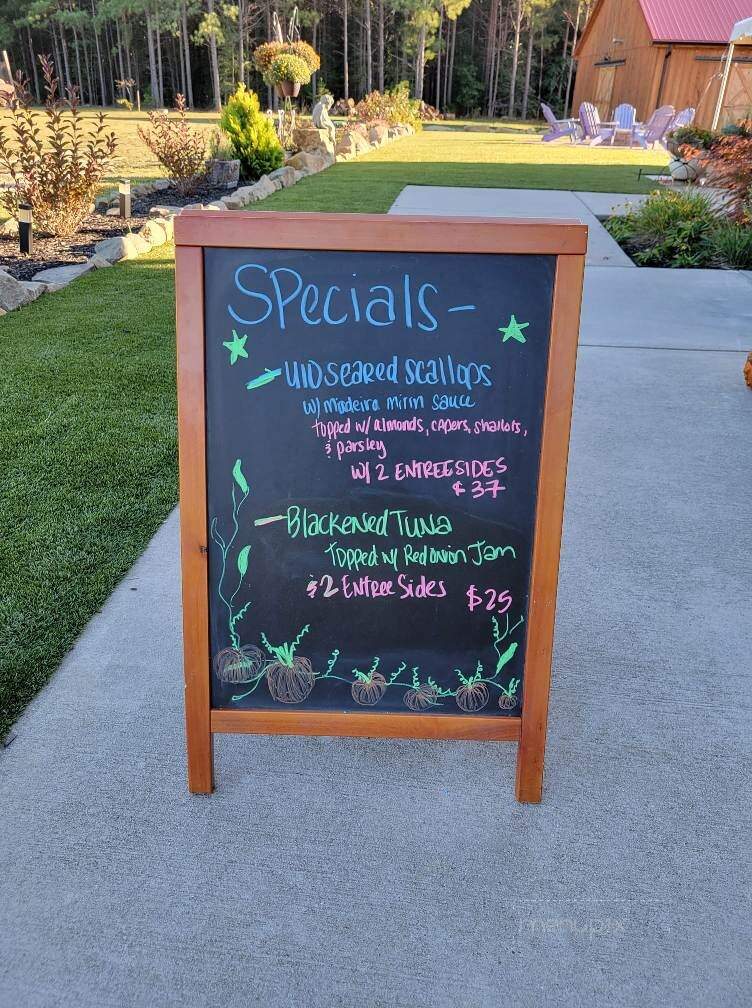 Specials-
- U10 seared scallops
w/ Madeira Mirin sauce
topped w/ almonds, capers, shallots,
& parsley
w/ 2 ENTREE SIDES
$37
- Blackened Tuna
Topped w/ Red onion Jam
& 2 Entree Sides $25
menupix